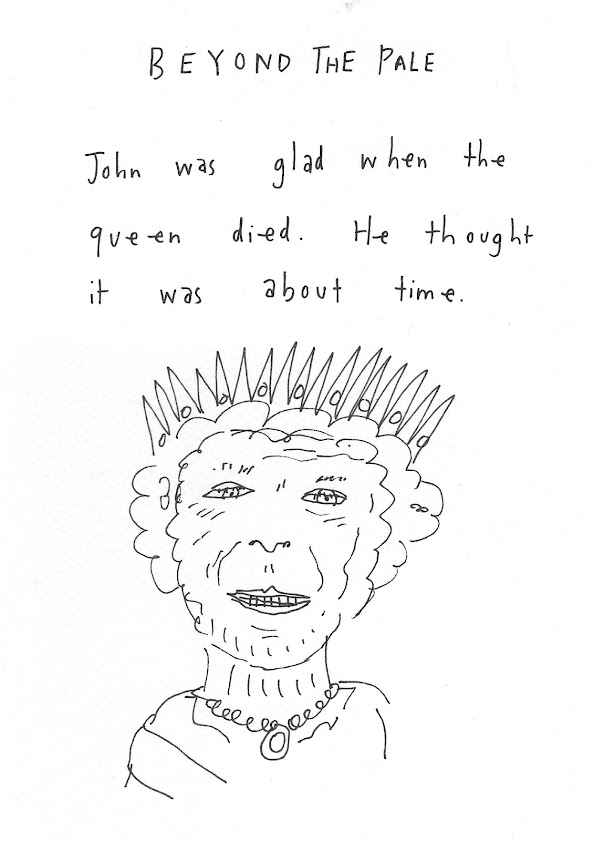 BEYOND THE PALE
John was glad when the
queen died. He thought
it was about time.